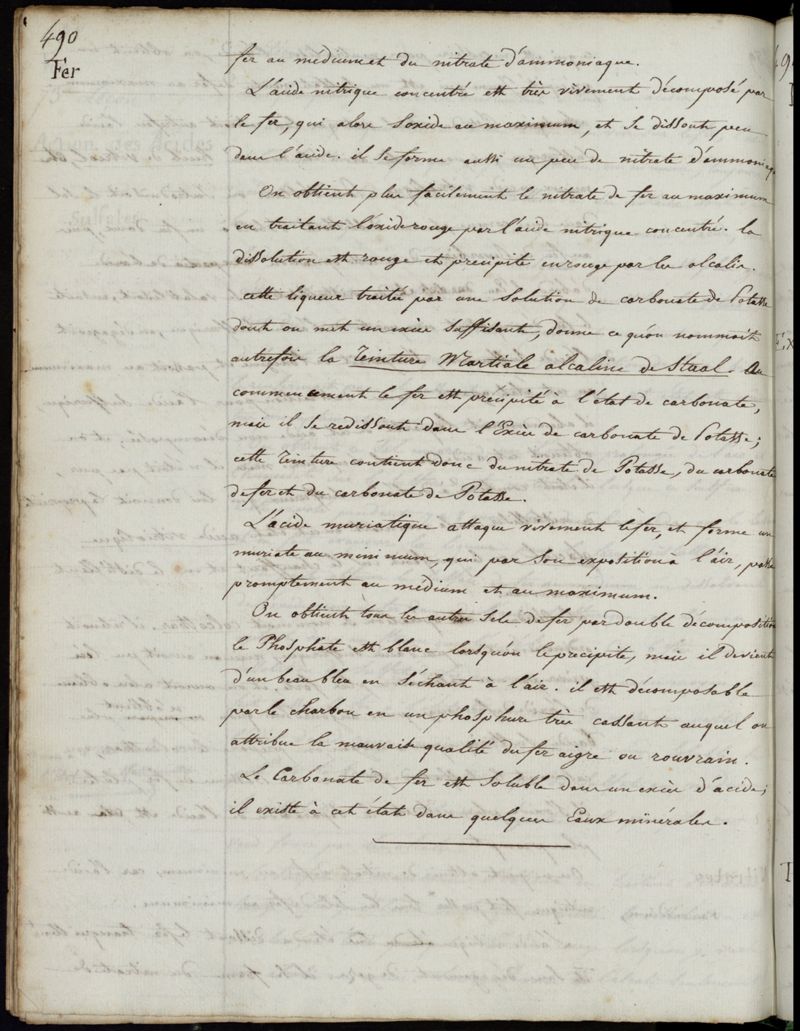 490
Fer
fer au medium et du nitrate d'ammoniaque.
L'acide nitrique concentré est très vivement décomposé par
le fer, qui alors s'oxide au maximum, et se dissout peu
dans l'acide. il se forme aussi un peu de nitrate d'ammoniaque
On obtient plus facilement le nitrate de fer au maximum
en traitant l'oxide rouge par l'acide nitrique concentré. la
dissolution est rouge et précipite en rouge par les alcalis.
cette liqueur traitée par une solution de carbonate de Potasse
dont on met un excès suffisant, donne ce qu'on nommoit
autrefois la Teinture Martiale alcaline de Staal. Au
commencement le fer est précipité à l'état de carbonate,
mais il se redissout dans l'Excès de carbonate de Potasse;
cette Teinture contient donc du nitrate de Potasse, du carbonate
de fer et du carbonate de Potasse.
L'acide muriatique attaque vivement le fer, et forme un
muriate au minimum, qui par son exposition à l'air, passe
promptement au medium et au maximum.
On obtient tous les autres sels de fer, par double décomposition
le Phosphate est blanc lorsqu'on le précipite, mais il devient
d'un beau bleu en séchant à l'air. il est décomposable
par le charbon en un phosphure très cassant auquel on
attribue la mauvaise qualité du fer aigre ou rouvrain.
Le Carbonate de fer est soluble dans un excès d'acide;
il existe à cet état dans quelques Eaux minérales.